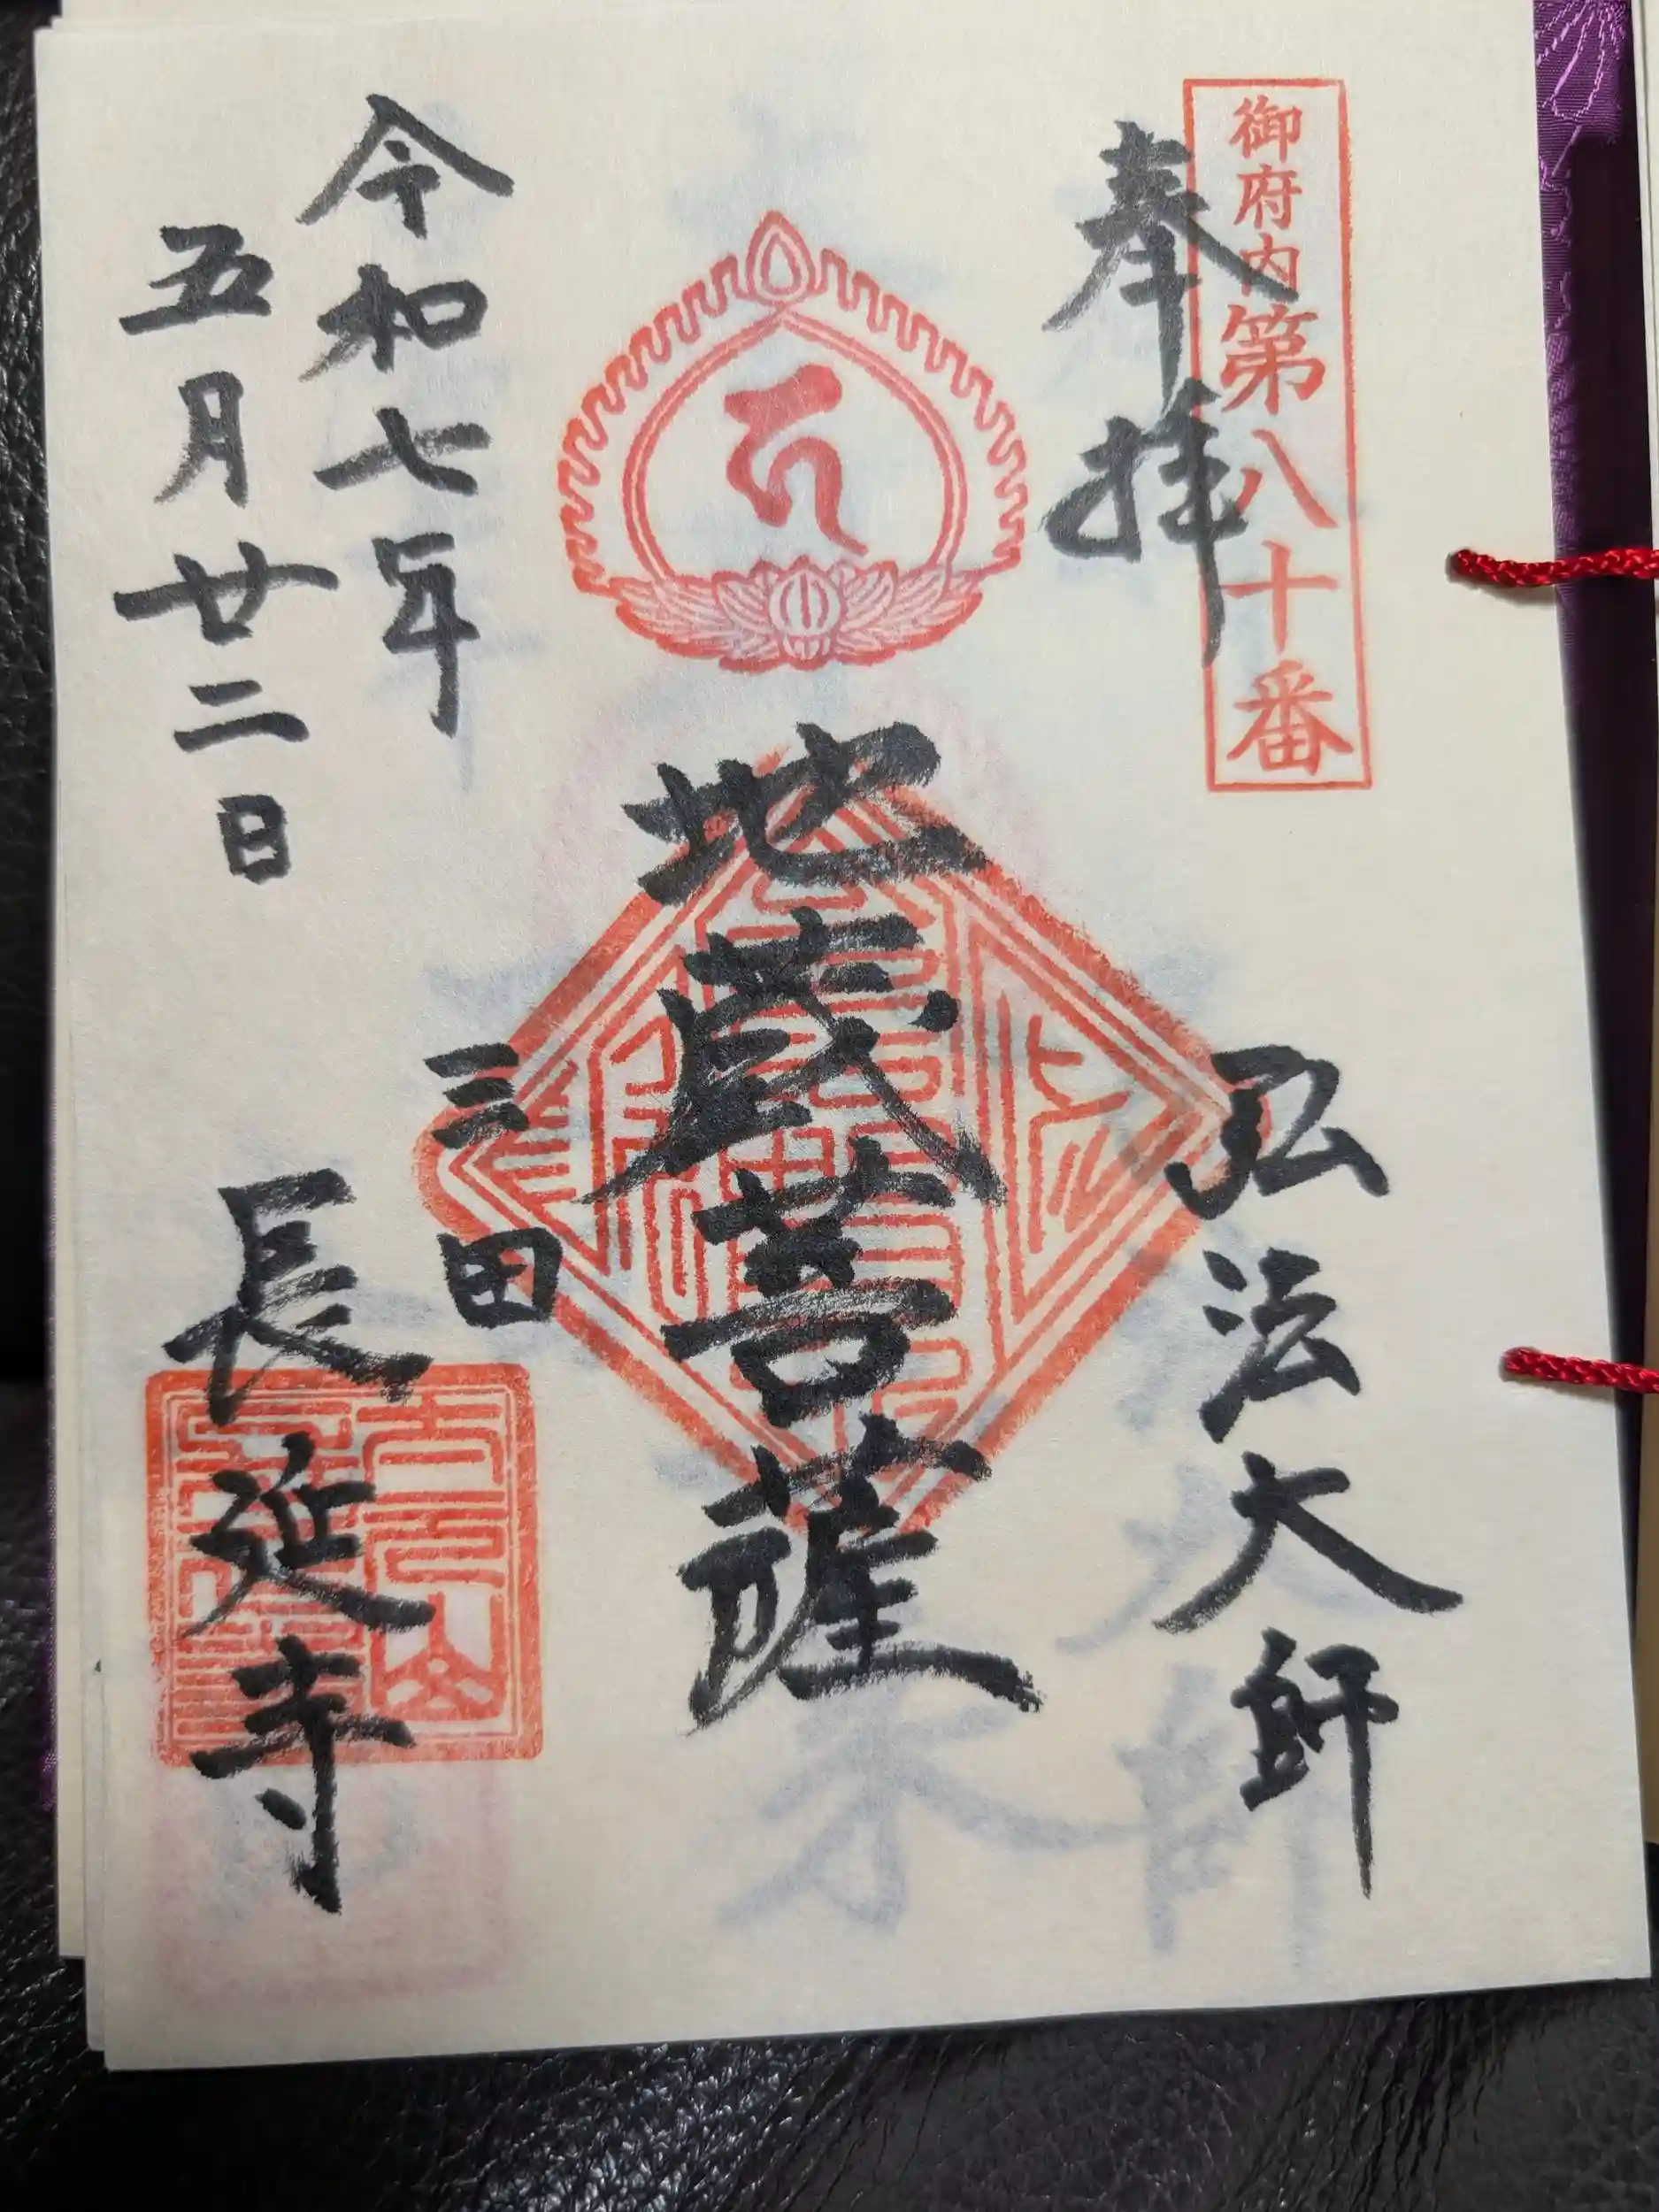 御府内第八十番
奉拝
弘法大師
地蔵菩薩
令和七年
五月廿二日
三田
長延寺